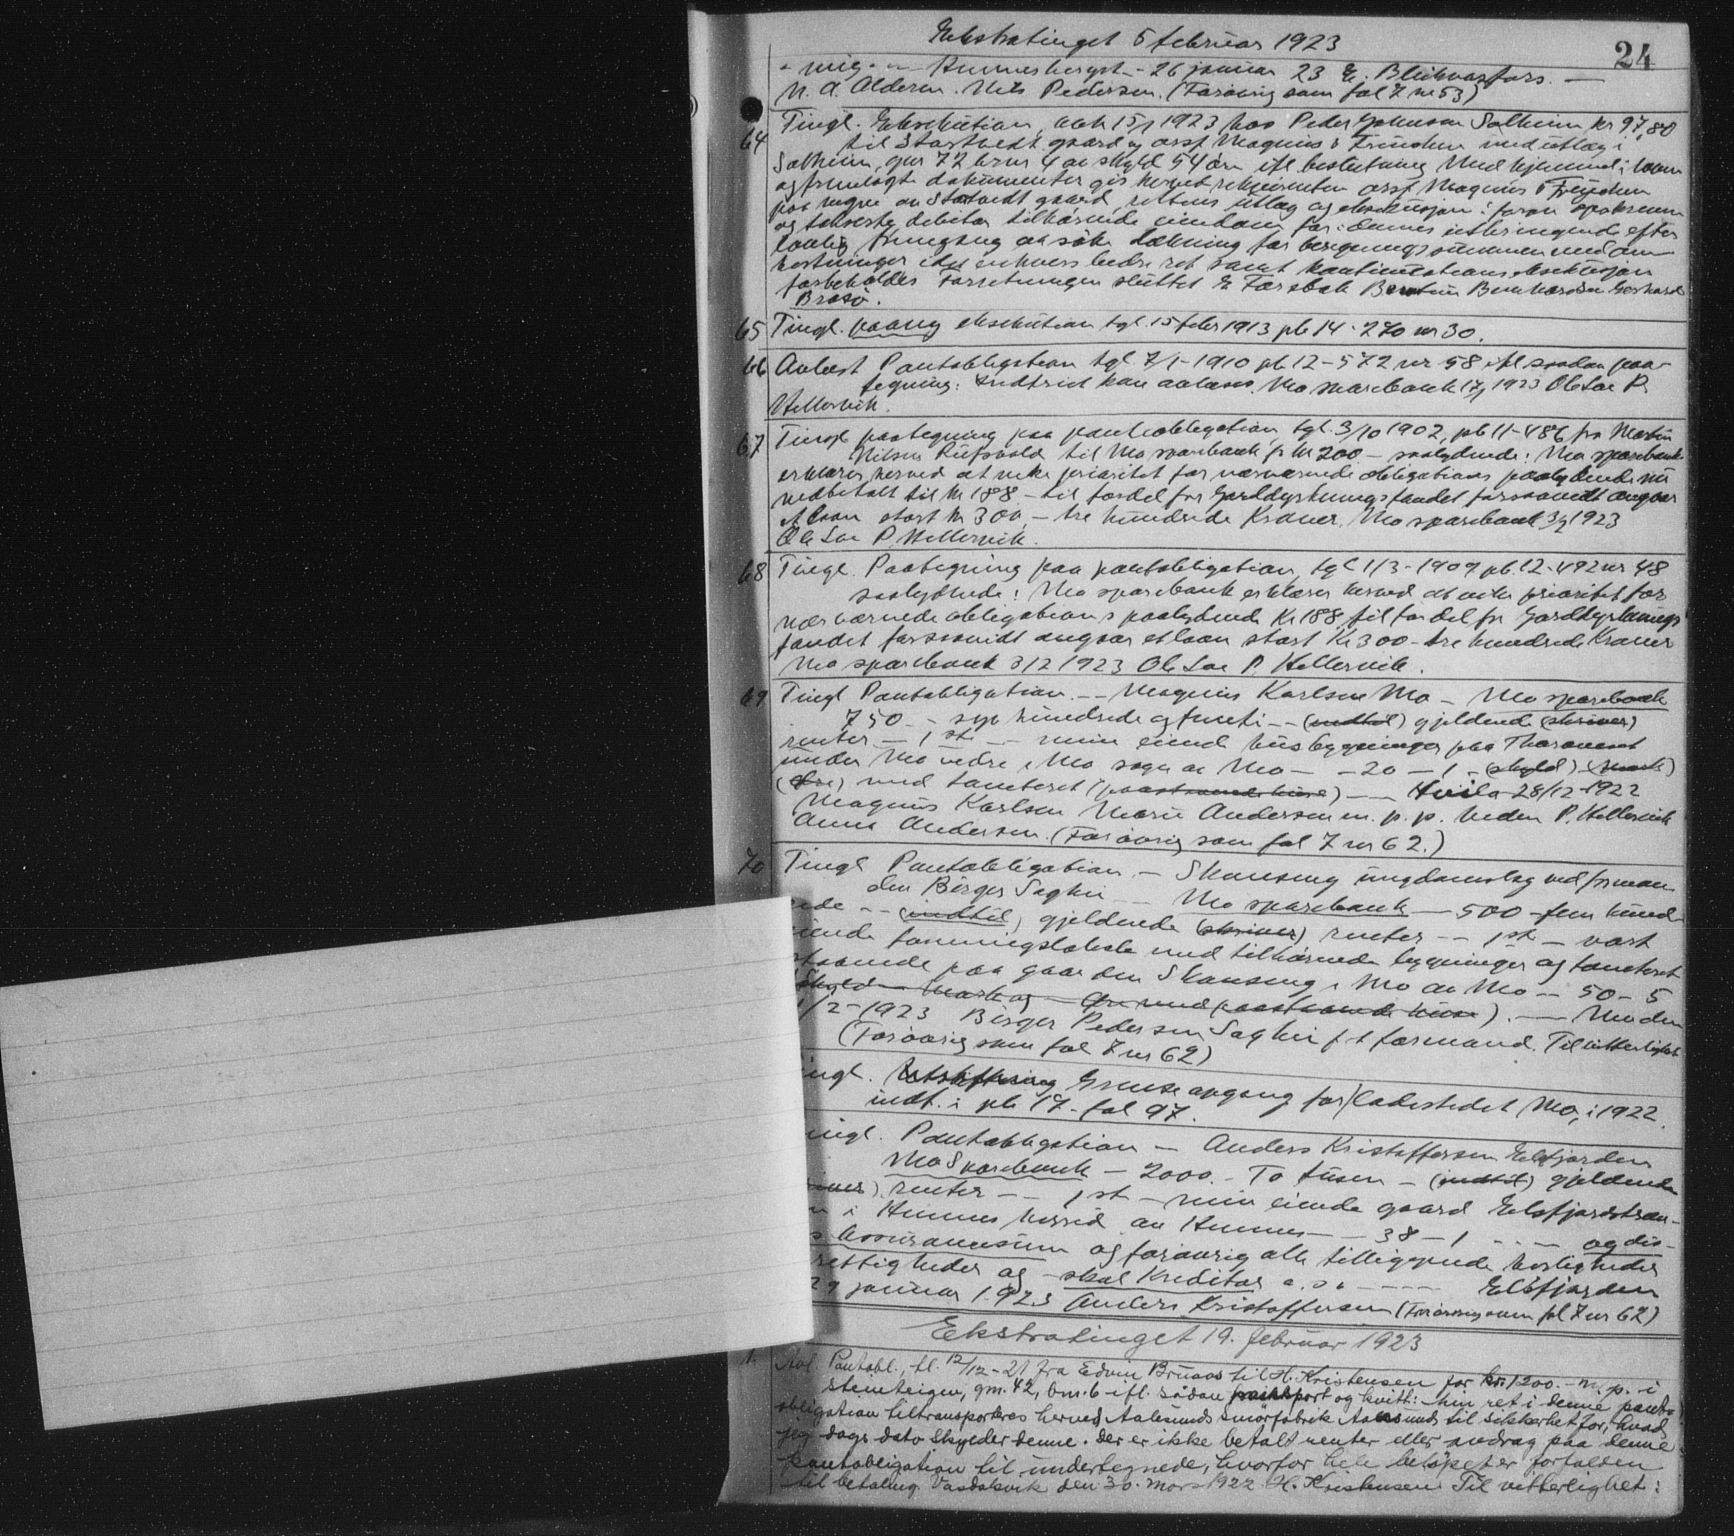 Ekstratinget 5 februar 1923
24
- mig - - Hunnesbergst - 26 januar 23 E. Blikvarfors. -
N. A. Alderen. Nils Pedersen. (Forøvrig som fol 7 nr 53)
64 Tingl. Eksekution, avh 15/1 1923 hos Peder Johnsen Solheim kr 97,80
til Stortvedt gaard og assf Magnus & med utlæg i
Solheim, gnr 72 brnr 4 av skyld 54 øre ifl beslutning Med hjemmel i loven
og fremlagte dokumenter gis herved rekvirenten assf Magnus &
paa vegne av Stortvedt gaard rettens utlæg og eksekusjon i foran
og takserte debitor tilhørende eiendom for i dennes utbringende efter
lovlig fremgang at søke dækning for
kostninger idet enhvers bedre ret samt kontinuations eksekusjon
forbeholdes Forretningen sluttet E Farsbak Bernhardsen Gerhard
Brasø.
65 Tingl. paaany eksekution tgl. 15 febr 1913 pb 14 - 270 nr 30.
66 Avlæst Pantobligation tgl 7/1 - 1910 pb 12 - 572 nr 58 ifl saadan paa-
tegning: Indfriet kan avlæses. Mo sparebank 17/1 1923 Ole Loe P.
Hellervik.
67 Tingl. paategning paa pantobligation tgl. 3/10 1902, pb 11 - 486 fra Martin
Nilsen Rufsvold til Mo sparebank for kr 200 - saalydende: Mo sparebank
erklærer herved at vike prioritet for nærværende obligations paalydende nu
nedbetalt til kr 188 - til fordel for Jorddyrkningsfondet forsaavidt angaar
et laan stort kr 300 - tre hundrede Kroner. Mo sparebank 3/2 1923
Ole Loe P. Hellervik.
68 Tingl. Paategning paa pantobligation, tgl 1/3 - 1909 pb. 12 - 492 nr 48
saalydende: Mo sparebank erklærer herved at vike prioritet for
nærværende obligations paalydende kr 188 til fordel for Jorddyrknings
fondet forsaavidt angaar et laan stort Kr 300 - tre hundrede Kroner
Mo sparebank 3/2 1923 Ole Loe P. Hellervik.
69 Tingl Pantobligation. - - Magnus Karlsen Mo - Mo sparebank
750 - - syv hundrede og femti - - (indtil) gjeldende (skriver)
renter - 1 st - - min eiend husbygninger paa Thoraneset
under Mo nedre i Mo sogn av Mo - - 20 - 1 - (skyld) (mark)
(øre) med tomteret (paastaaende huse) - - Hvila 28/12 1922
Magnus Karlsen Marie Andersen m. p. p. Meden P. Hellervik
Anna Andersen. (Forøvrig som fol 7 nr 62.)
70 Tingl Pantobligation - Skonseng ungdomslag ved forman
den Birger Saghei - - Mo sparebank - 500 - fem hund-
rede - - (indtil) gjeldende (skriver) renter - - 1 st - vort
eiende foreningslokale med tilhørende bygninger og tomteret
staaende paa gaarden Skonseng i Mo av Mo - - 50 - 5
(skyld - mark og - øre med paastaaende huse). - - Mo den
1/2 - 1923 Birger Pedersen Saghei p t formand. Til vitterlighet
(Forøvrig som fol 7 nr 62)
ingl. Utskiftning Grenseopgang for ladestedet Mo, i 1922.
indt. i pb 17 - fol 97.
ingl. Pantobligation - Anders Kristoffersen Elsfjorden
Mo Sparebank - 2000 - To tusen - (indtil) gjeldende
renter - - 1 st - min eiende gaard Elsfjordstran-
n i Hemnes herred av Hemnes - - 38 - 1 - - - og dis-
s assurancesum og forøvrig alle tilliggende herligheder
rettigheder og - skal kreditor o. s. v. - - - Elsfjorden
29 januar 1923 Anders Kristoffersen (Forøvrig som fol 7 nr 62)
Ekstratinget 19. februar 1923
1. Avl. Pantobl., tl. 12/12 - 21 fra Edvin Bruaas til H. Kristensen for kr. 1200. - m. p. i
Steinteigen, gnr. 42, bnr. 6 ifl. sådan transport og kvitt: Min ret i denne panto-
obligation tiltransporteres herved Aalesunds Smørfabrik Aalesund til sikkerhet for, hvad
jeg dags dato skylder denne. Der er ikke betalt renter eller avdrag paa denne
pantobligation til undertegnede, hvorfor hele beløpet er forfalden
til betaling. Vasdalsvik den 30. mars 1922. H. Kristensen Til vitterlighet: